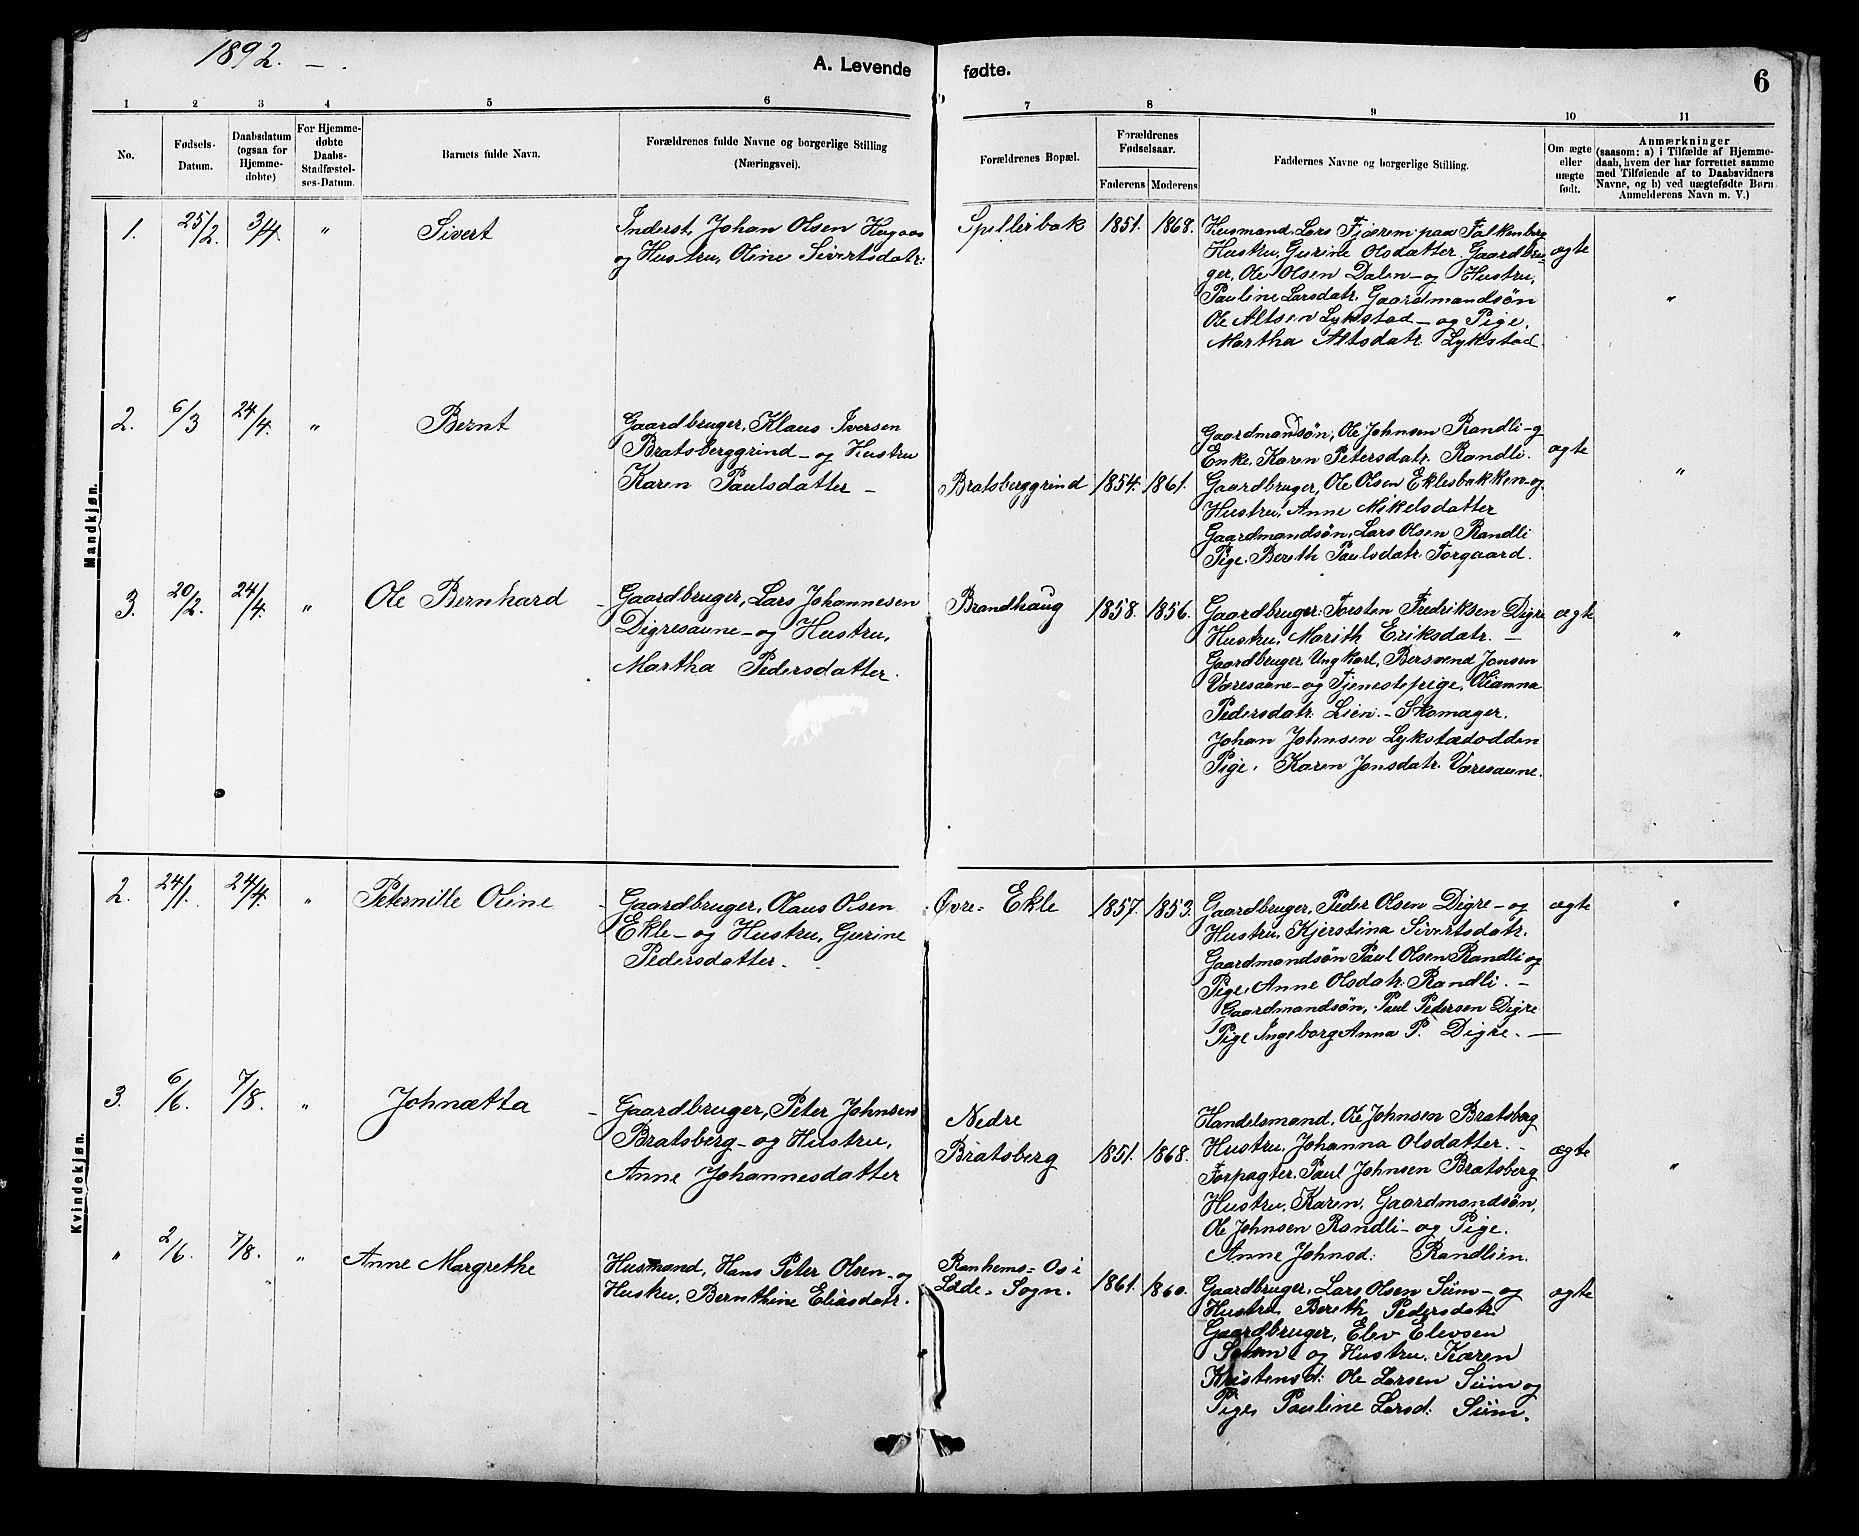 1892. –.
A. Levende fødte.
6
1 2 3 4 5 6 7 8 9 10 11
No.
Fødsels-
Datum.
Daabsdatum
(ogsaa for
Hjemme-
døbte)
For Hjemme-
døbte
Daabs-
Stadfæstel-
ses-Datum.
Barnets fulde Navn.
Forældrenes fulde Navne og borgerlige Stilling
(Næringsvei).
Forældrenes Bopæl.
Forældrenes
Fødselsaar.
Faderens Moderens
Faddernes Navne og borgerlige Stilling.
Om ægte
eller
uægte
født.
Anmærkninger
(saasom: a) i Tilfælde af Hjemme-
daab, hvem der har forrettet samme
med Tilføiende af to Daabsvidners
Navne, og b) ved uægtefødte Børn
Anmelderens Navn m. V.)
Mandkjøn.
1. 25/2. 3/4. " Sivert
Inderst, Johan Olsen Hugaas
og Hustru, Oline Sivertsdatr:
Spellerbak 1851. 1868.
Husmand, Lars Fjærem paa Falkenberg
Hustru, Gurine Olsdatter. Gaardbru-
ger, Ole Olsen Dalen – og Hustru,
Pauline Larsdatr. Gaardmandsøn
Ole Altsen Lykstad – og Pige,
Martha Altsdatr. Lykstad.
ægte "
2. 6/3 24/4. " Bernt
Gaardbruger, Klaus Iversen
Bratsberggrind – og Hustru
Karen Paulsdatter –
Bratsberggrind 1854. 1861.
Gaardmandsøn, Ole Johnsen Randli – g
Enke, Karen Petersdatr. Randli.
Gaardbruger, Ole Olsen Eklesbakken – og
Hustru, Anne Mikelsdatter
Gaardmandsøn, Lars Olsen Randli
Pige, Bereth Paulsdatr. Forgaard.
ægte "
3. 20/2. 24/4. " Ole Bernhard
Gaardbruger, Lars Johannesen
Digresaune – og Hustru,
Martha Pedersdatter.
Brandhaug 1858. 1856.
Gaardbruger, Torsten Fredriksen Digre
Hustru, Marith Eriksdatr. –
Gaardbruger Ungkarl, Bersvend Jonsen
Væresaune – og Tjenestepige, Olianna
Pedersdatr. Lien. – Skomager,
Johan Johnsen Lykstadodden
Pige, Karen Jonsdatr. Væresaune.
ægte "
Kvindekjøn.
2. 24/1. 24/4. " Peternille Oline
Gaardbruger, Olaus Olsen
Ekle – og Hustru, Gurine
Pedersdatter.
Øvre = Ekle 1857. 1853.
Gaardbruger, Peder Olsen Digre – og
Hustru, Kjerstina Sivertsdatr.
Gaardmandsøn Paul Olsen Randli og
Pige, Anne Olsdatr. Randli. –
Gaardmandsøn, Paul Pedersen Digre
Pige Ingeborg Anna P. Digre. –
ægte "
3. 6/6. 7/8. " Johnætta
Gaardbruger, Peter Johnsen
Bratsberg – og Hustru,
Anne Johannesdatter
Nedre
Bratsberg 1851. 1868.
Handelsmand, Ole Johnsen Bratsberg
Hustru, Johanna Olsdatter. –
Forpagter, Paul Johnsen Bratsberg
Hustru, Karen. Gaardmandsøn,
Ole Johnsen Randli – og Pige.
Anne Johnsd: Randlien.
ægte "
" 2/6. 7/8. " Anne Margrethe
Husmand, Hans Peter Olsen – og
Hustru, Bernthine Eliasdatr.
Ranhems = Os i
Lade = Sogn. 1861. 1860.
Gaardbruger, Lars Olsen Siim – og
Hustru Bereth Pedersdatr.
Gaardbruger, Elev Elevsen
og Hustru, Karen
Kristensd: Ole Larsen Siim og
Pige, Pauline Larsd: Siim.
ægte "